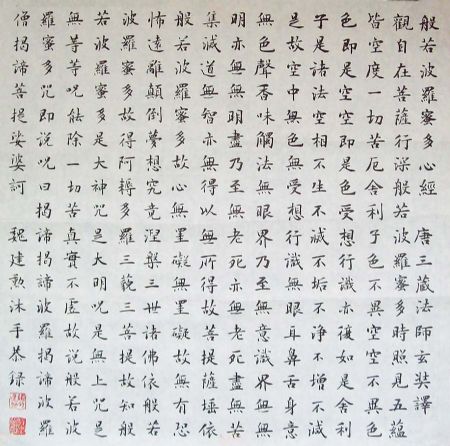 般若波羅蜜多心經 唐三藏法師玄奘譯
觀自在菩薩行深般若波羅蜜多時照見五蘊
皆空度一切苦厄舍利子色不異空空不異色
色即是空空即是色受想行識亦復如是舍利
子是諸法空相不生不滅不垢不淨不增不減
是故空中無色無受想行識無眼耳鼻舌身意
無色聲香味觸法無眼界乃至無意識界無無
明亦無無明盡乃至無老死亦無老死盡無苦
集滅道無智亦無得以無所得故菩提薩埵依
般若波羅蜜多故心無罣礙無罣礙故無有恐
怖遠離顛倒夢想究竟涅槃三世諸佛依般若
波羅蜜多故得阿耨多羅三藐三菩提故知般
若波羅蜜多是大神咒是大明呪是無上咒是
無等等呪能除一切苦真實不虛故說般若波
羅蜜多呪即說呪曰揭諦揭諦波羅揭諦波羅
僧揭諦菩提娑婆訶 魏建勳沐手恭錄